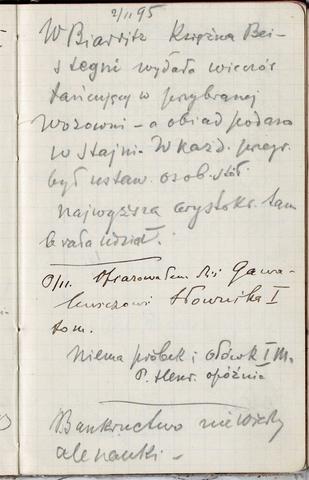 2/11 95
W Biarritz Księżna Bei-
stegni wydała wieczór
tańcujący w przybranej
wozowni - a obiad podano
w stajni. W każd. przegr.
był ustaw. osob. stół.
najwyższa arystokr. tam
brała udział.
8/11. Ofiarowałem dziś Gawa-
lewiczowi Słownika I
tom.
Niema próbek i ołówk I M.
P. Henr. opóźnia
Bankructwo niewiedzy
ale nauki -